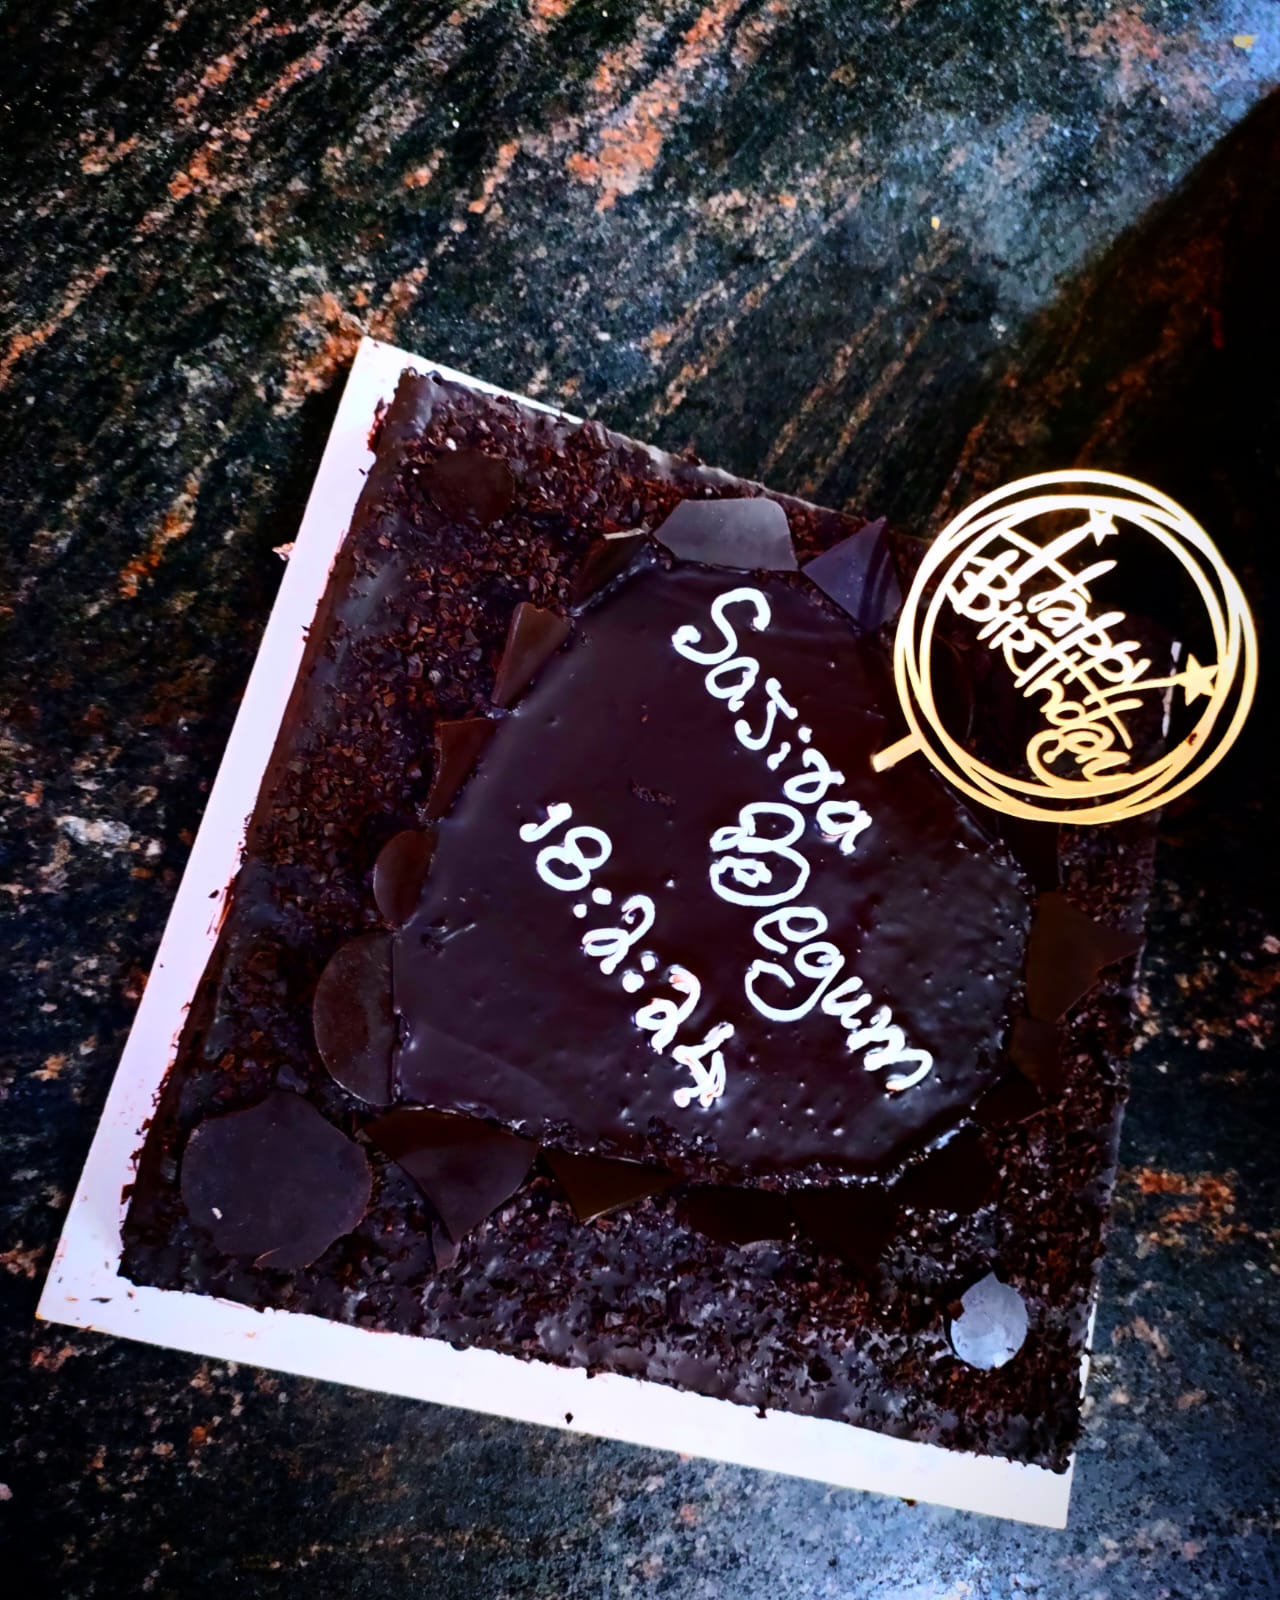 Happy
Birthday
Sajida
Begum
18:2:24